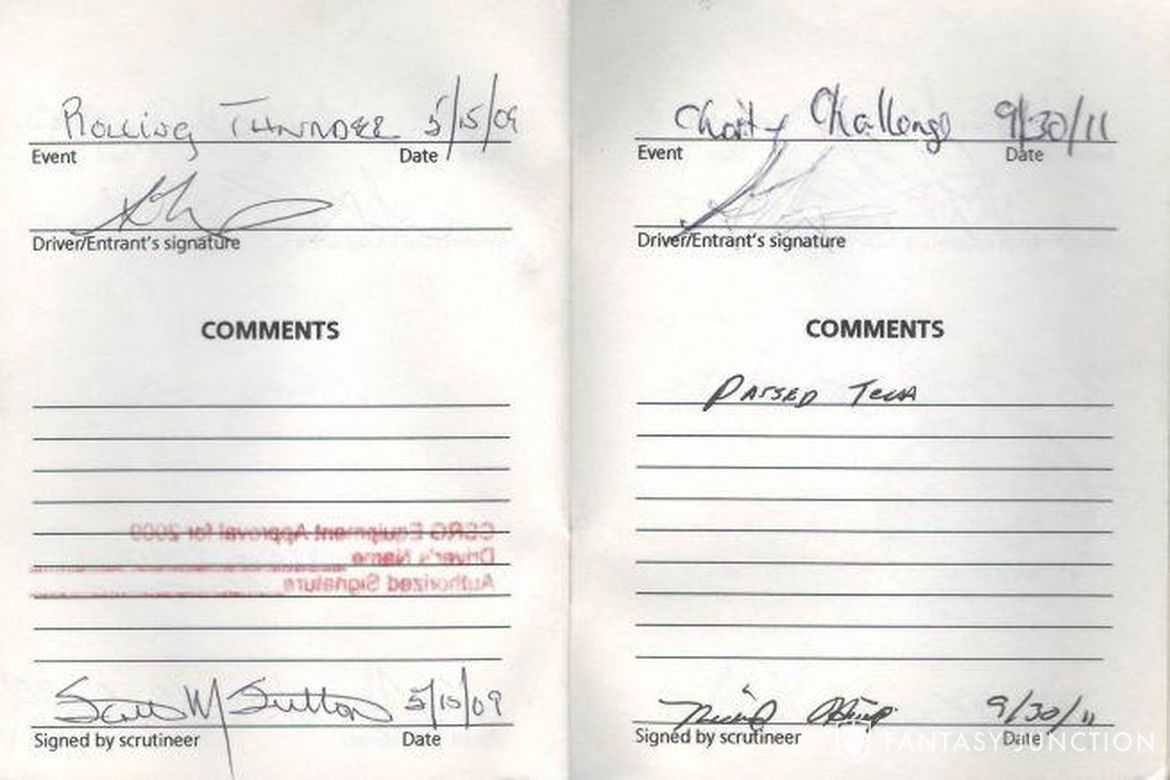 Rolling Thunder 5/15/09
Event Date
Driver/Entrant's signature
COMMENTS
CSRG Equipment Approval for 2009
Driver's Name
Authorized Signature
Scott M Sutton 5/15/09
Signed by scrutineer Date
Charity Challenge 9/30/11
Event Date
Driver/Entrant's signature
COMMENTS
Passed Tech
9/30/11
Signed by scrutineer Date
FANTASY JUNCTION